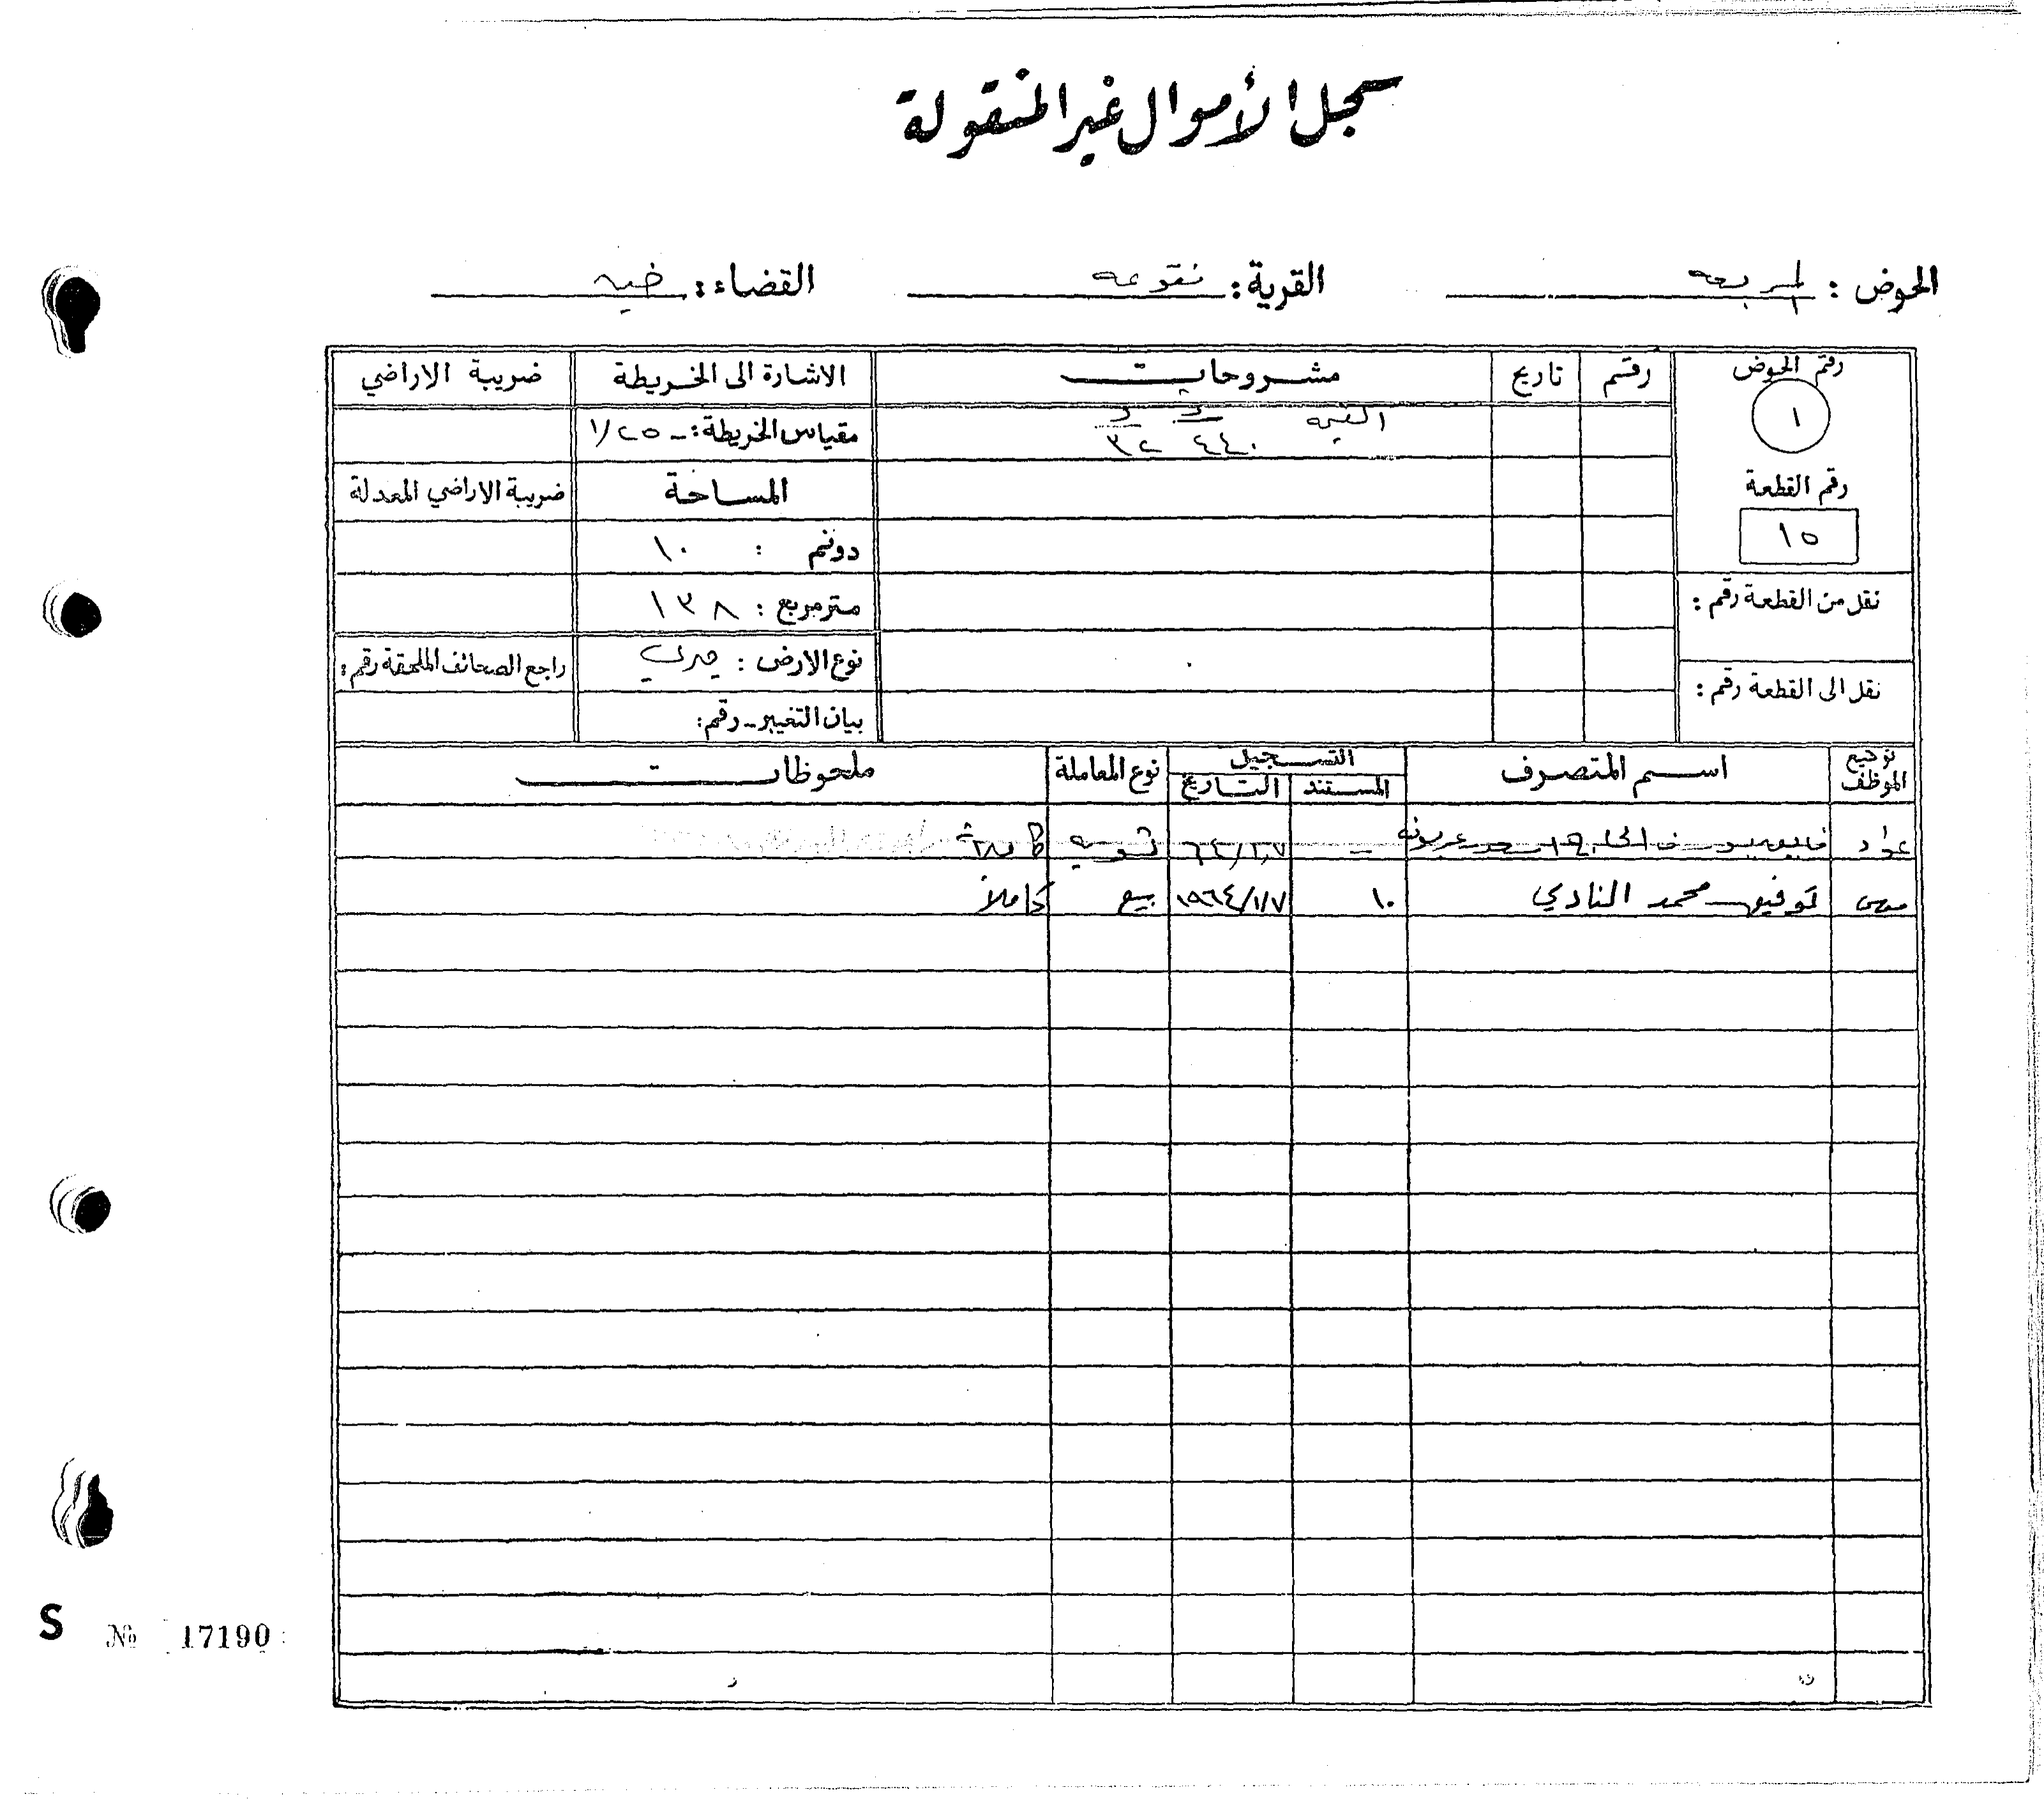 سجل الأموال غير المنقولة
الحوض : المربعه القرية : نقوعه القضاء :
رقم الحوض رقم تاريخ مشروحات الاشارة الى الخريطة ضريبة الاراضي
١ القيمه مقياس الخريطة : ١/٢٥٠٠
٤٤٠ ٣٢
رقم القطعة المساحة ضريبة الاراضي المعدلة
١٥ دونم : ١٠
نقل من القطعة رقم : متر مربع : ١٣٨
نوع الارض : ميري راجع الصحائف الملحقة رقم :
نقل الى القطعة رقم : بيان التغيير - رقم :
توقيع الموظف اسم المتصرف التسجيل نوع المعاملة ملحوظات
المستند التاريخ
عواد يوسف الحاج - تسويه
توفيق محمد النادي ١٠ ١٩٦٤/١/٧ بيع كاملاً
S № 17190